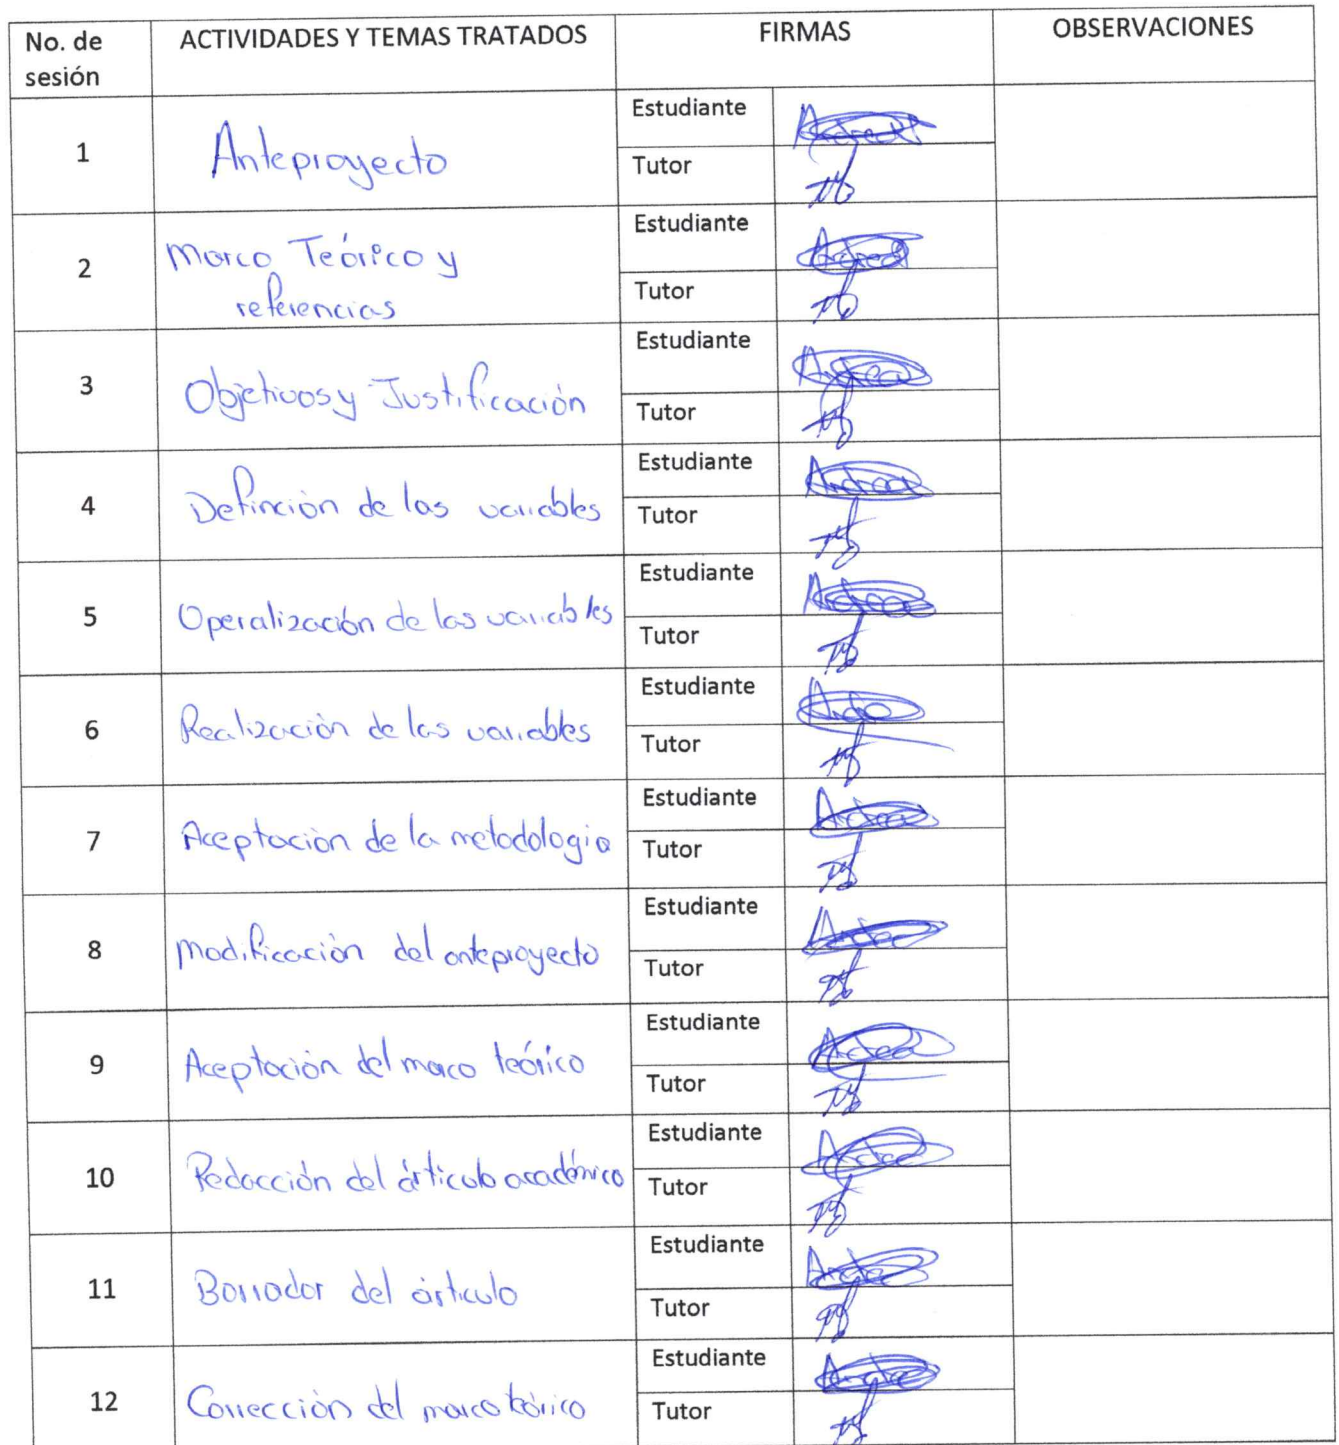 No. de sesión ACTIVIDADES Y TEMAS TRATADOS FIRMAS OBSERVACIONES
1 Anteproyecto Estudiante Andrea
Tutor
2 Marco Teórico y Estudiante Andrea
referencias Tutor
3 Objetivos y Justificación Estudiante Andrea
Tutor
4 Definción de las variables Estudiante Andrea
Tutor
5 Operalización de las variables Estudiante Andrea
Tutor
6 Realización de las variables Estudiante
Tutor
7 Aceptación de la metodologia Estudiante Andrea
Tutor
8 Modificación del anteproyecto Estudiante Andrea
Tutor
9 Aceptación del marco teórico Estudiante Andrea
Tutor
10 Redacción del árticulo académico Estudiante Andrea
Tutor
11 Borrador del árticulo Estudiante Andrea
Tutor
12 Corrección del marco teórico Estudiante Andrea
Tutor